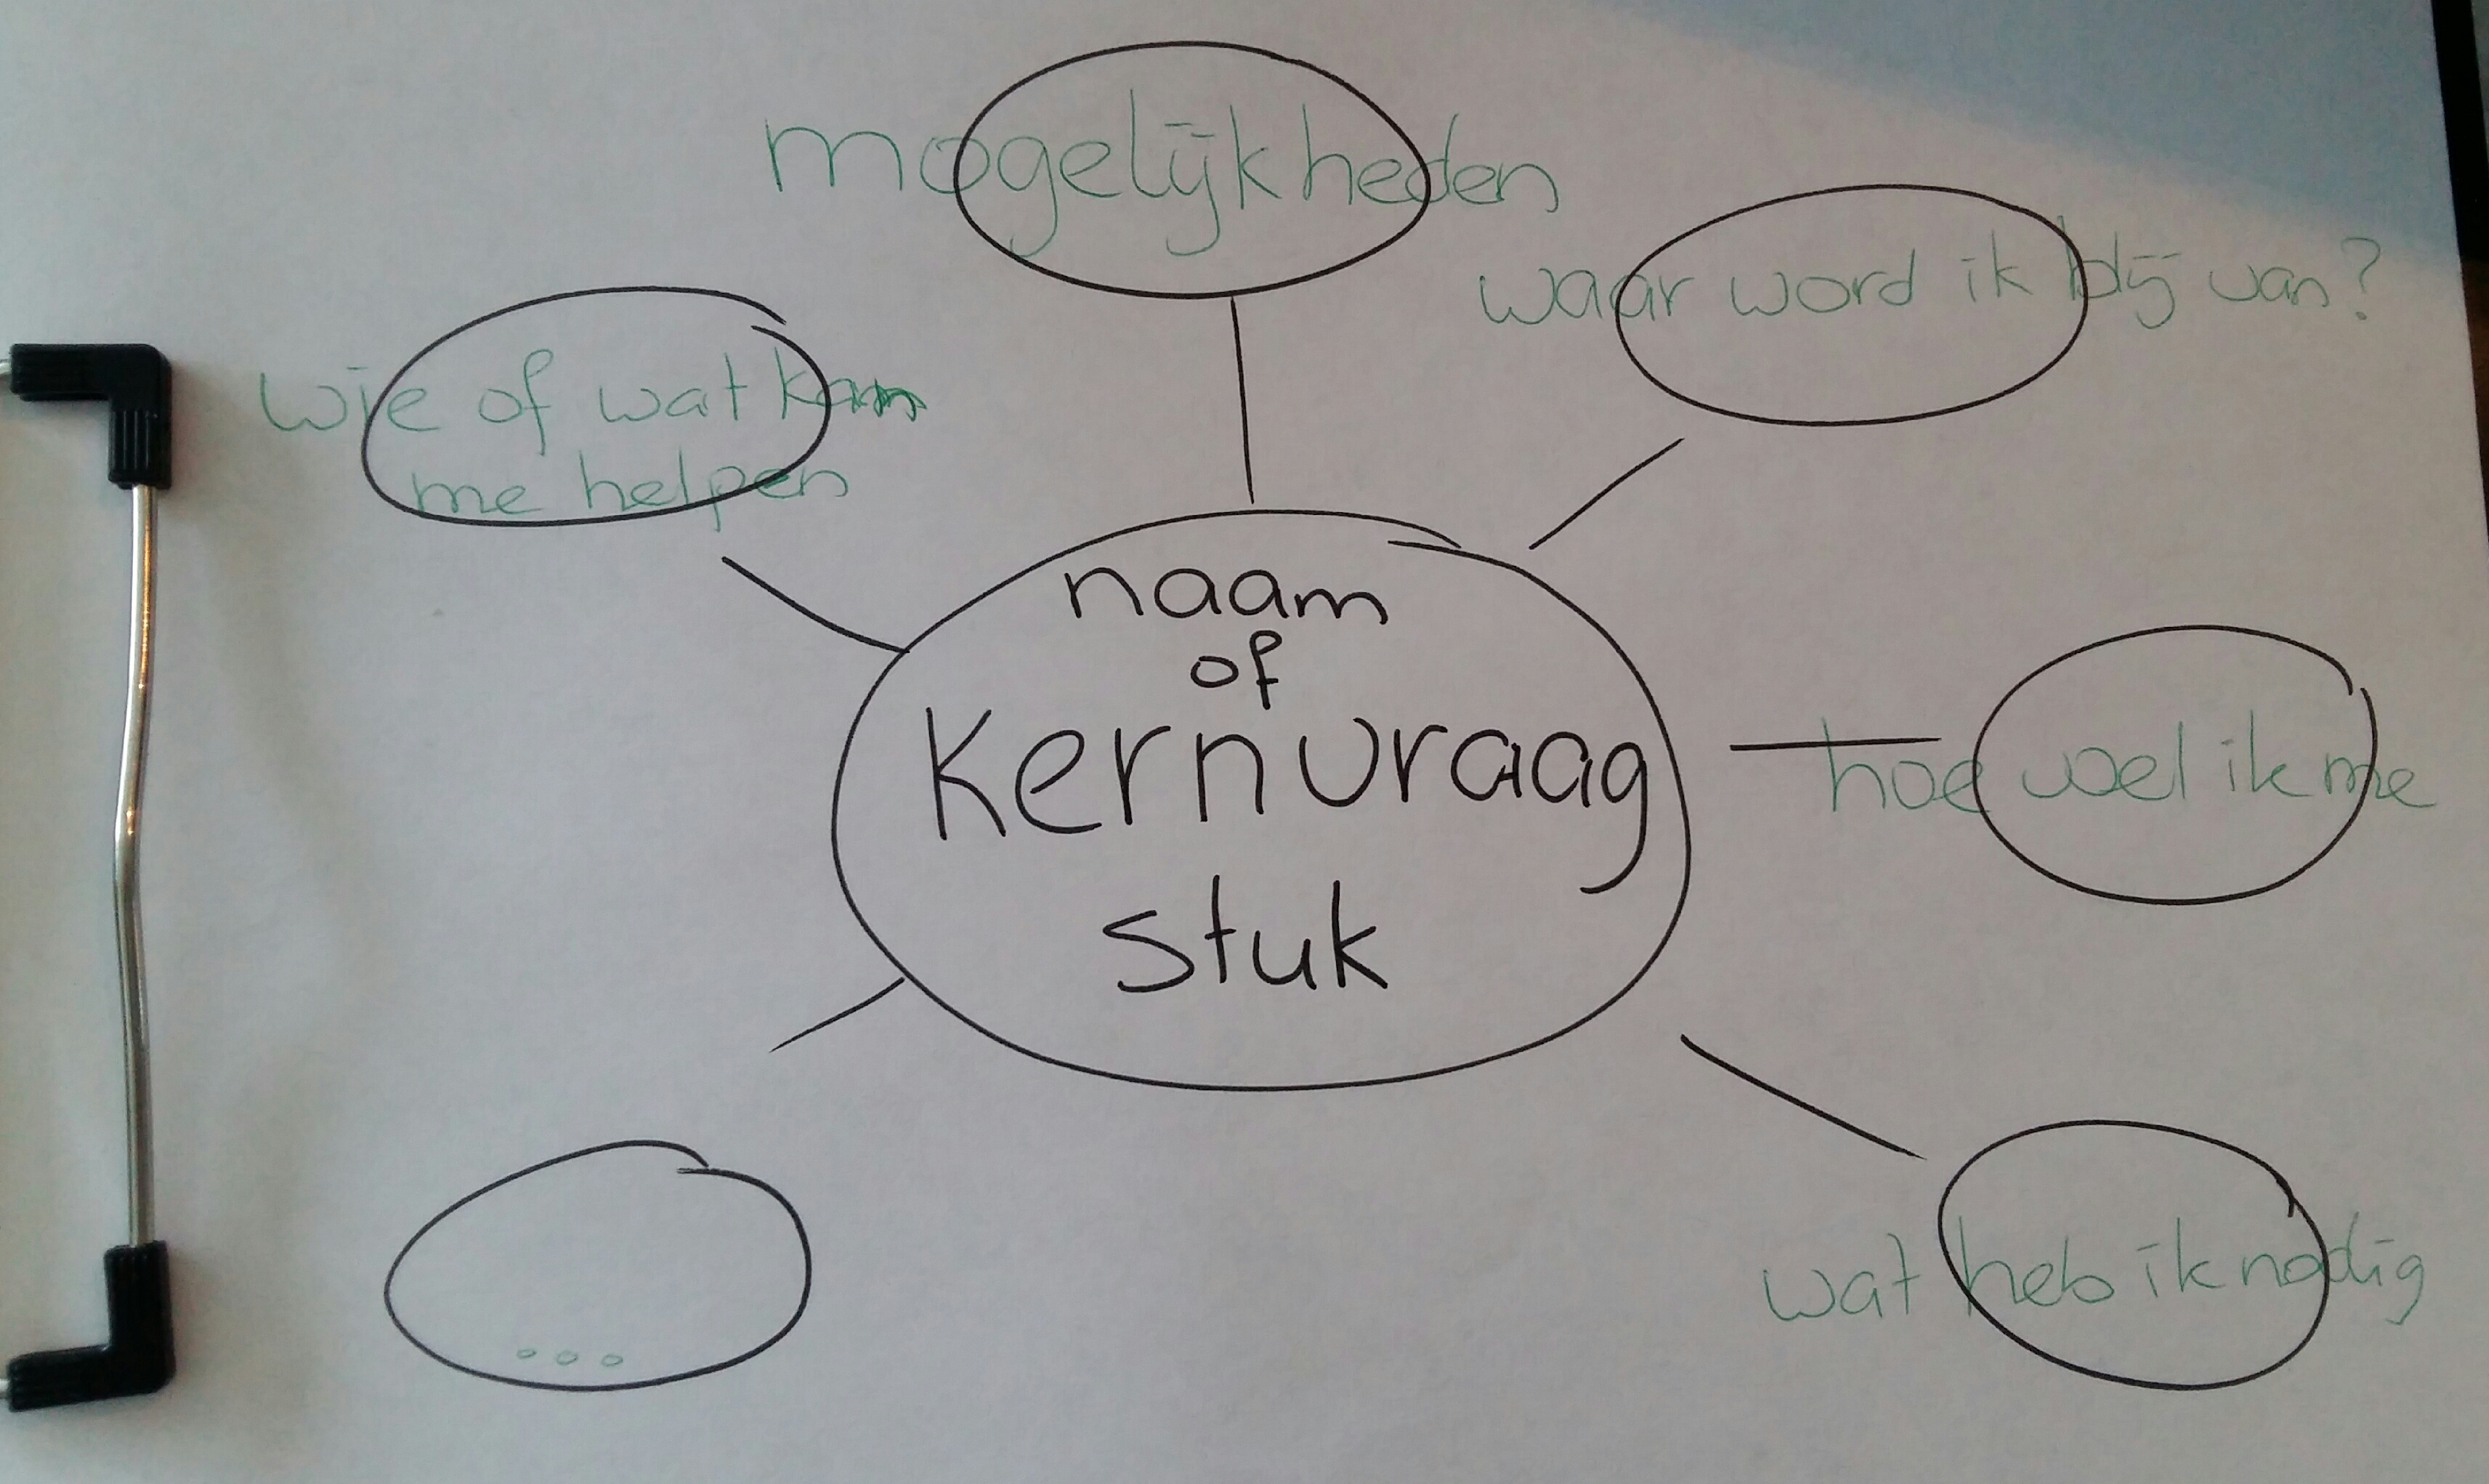 mogelijkheden
waar word ik blij van?
wie of wat kan
me helpen
naam
of
kernvraag
stuk
hoe voel ik me
wat heb ik nodig
...